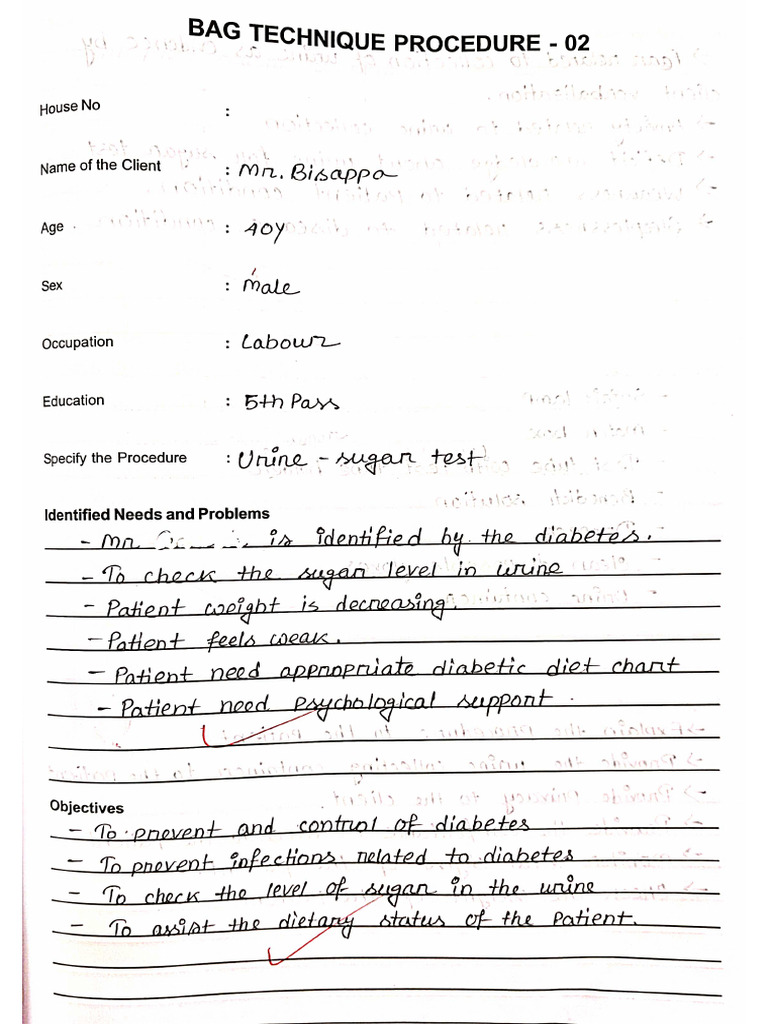 BAG TECHNIQUE PROCEDURE - 02
House No :
Name of the Client : Mr. Bisappa
Age : 40Y
Sex : Male
Occupation : Labour
Education : 5th Pass
Specify the Procedure : Urine - sugar test
Identified Needs and Problems
- Mr is identified by the diabetes.
- To check the sugar level in urine
- Patient weight is decreasing.
- Patient feels weak.
- Patient need appropriate diabetic diet chart
- Patient need psychological support.
Objectives
- To prevent and control of diabetes
- To prevent infections related to diabetes
- To check the level of sugar in the urine
- To assist the dietary status of the patient.